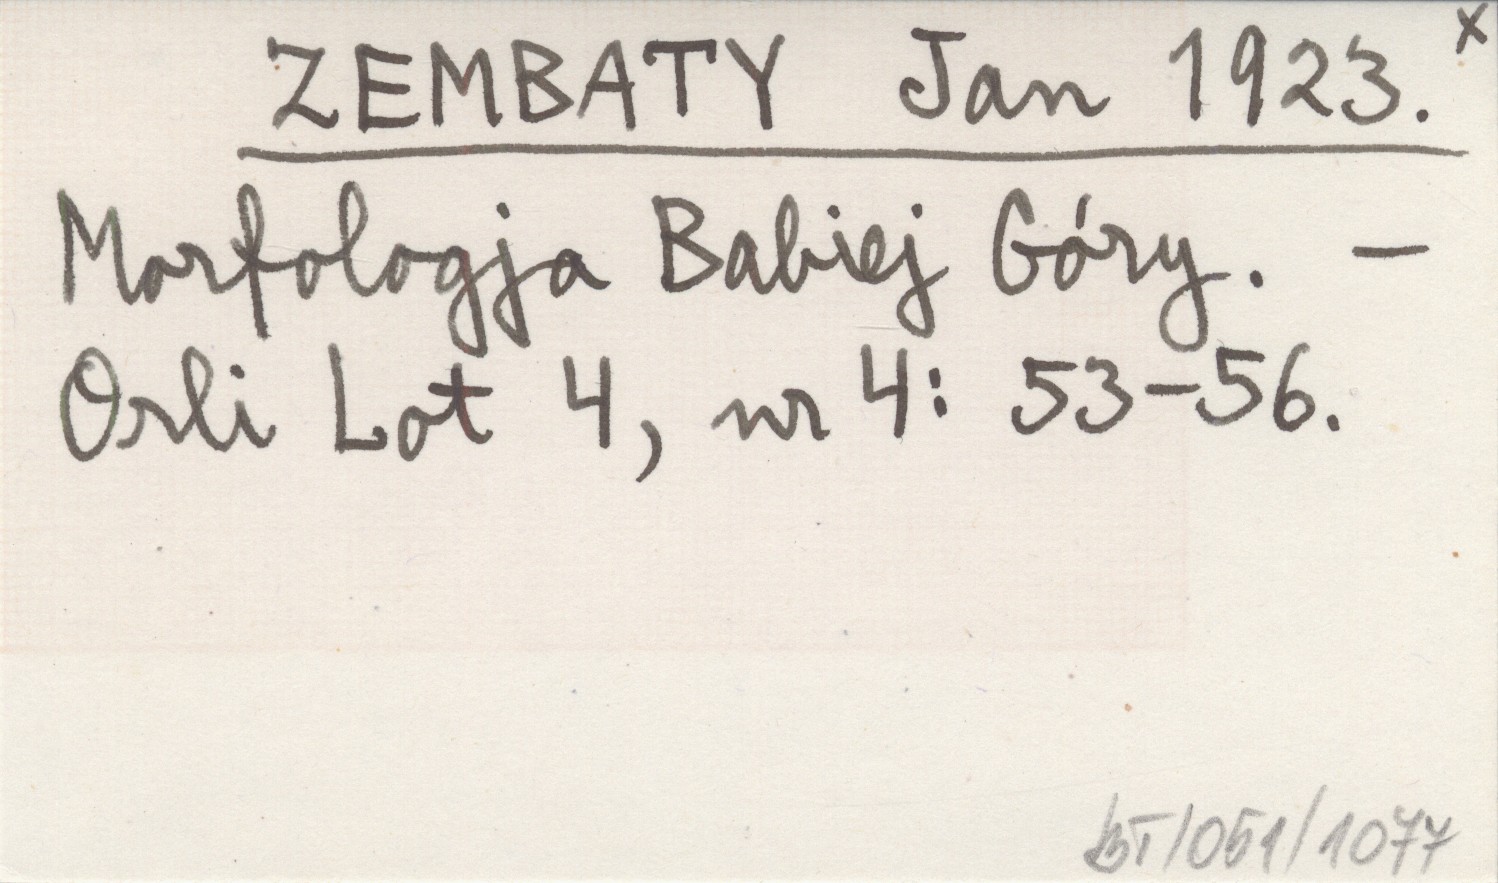 ZEMBATY Jan 1923. x
Morfologja Babiej Góry. –
Orli Lot 4, nr 4: 53–56.
BT/051/1077